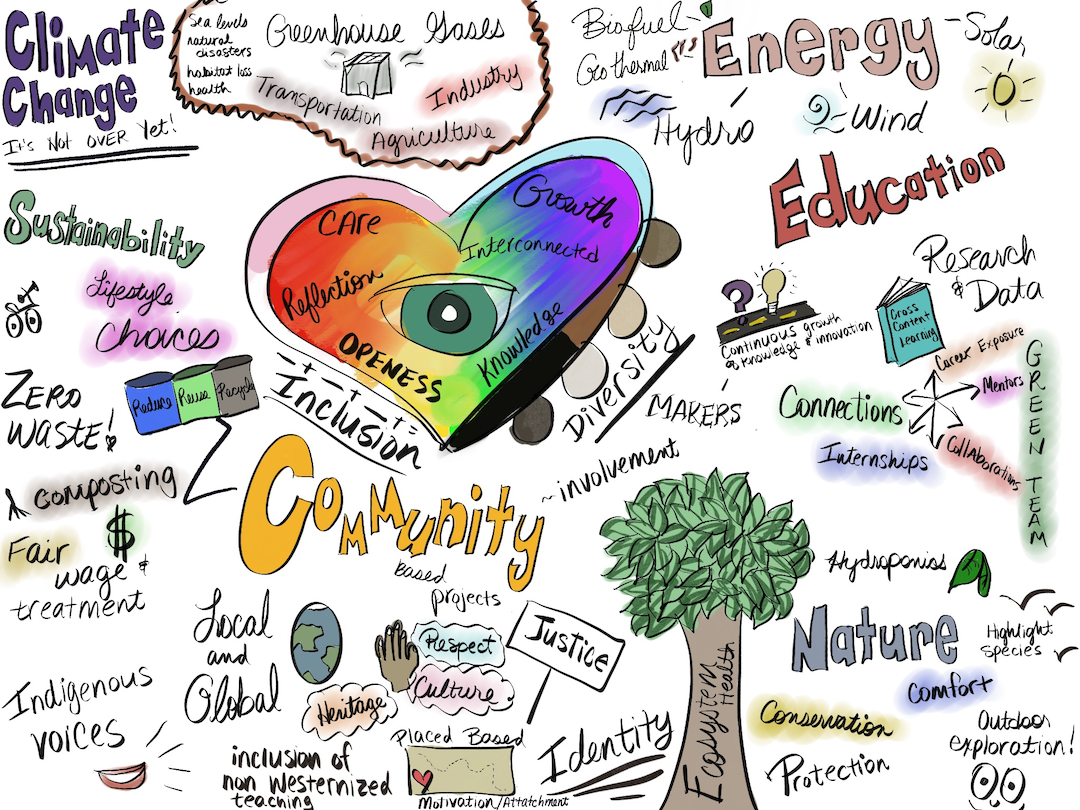 Climate
Change
It's Not OVER Yet!
Sea levels
natural
disasters
habitat loss
health
Greenhouse Gases
Transportation
Industry
Agriculture
Biofuel
Geothermal
Energy
Solar
Hydro
Wind
Sustainability
Lifestyle
Choices
ZERO
WASTE!
Reduce
Reuse
Recycle
composting
$
Fair
wage &
treatment
CARE
Growth
Interconnected
Reflection
OPENESS
Knowledge
Inclusion
Diversity
Education
Research
& Data
?
Continuous growth
of knowledge & innovation
Cross
Content
Learning
MAKERS
Career Exposure
Mentors
Connections
Internships
Collaborations
GREEN TEAM
Community
~involvement
Based
projects
Local
and
Global
Respect
Culture
Heritage
Justice
Indigenous
voices
inclusion of
non Westernized
teaching
Placed Based
Motivation/Attatchment
Identity
Ecosystem
Health
Hydroponios
Nature
Highlight
Species
Comfort
Conservation
Protection
Outdoor
exploration!